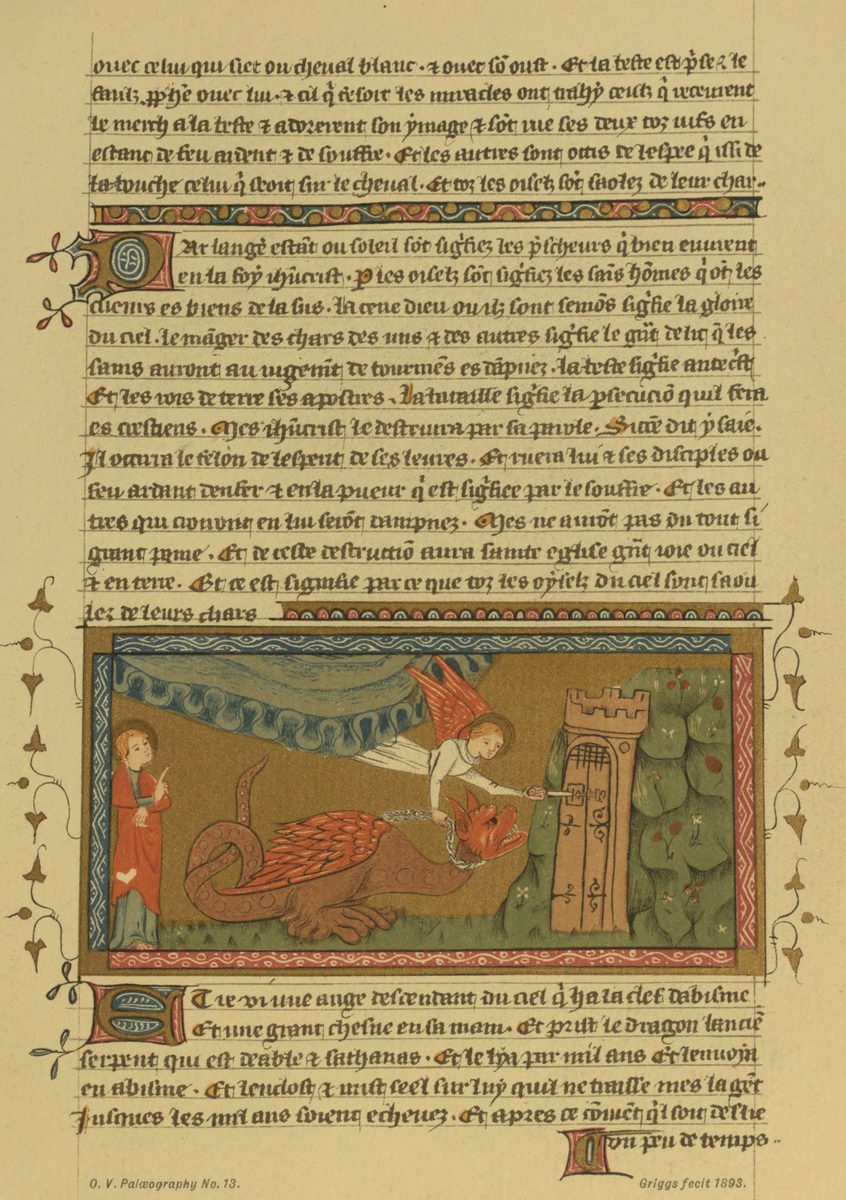 ouec celui qui siet ou cheual blanc · ⁊ ouec sō oust · Et la beste est p̄se ⁊ le
faulz pphē ouec lui · ⁊ cil q̄ fesoit les miracles ont trahy ceulz q̄ receurent
le merch a la beste ⁊ adorerent son ymage ⁊ sōt mis ses deux toz uifs en
estanc de feu ardent ⁊ de souffre · Et les autres sont ocis de lespee q̄ issi de
la bouche celui q̄ seoit sur le cheual · Et toz les oiselz sōt saolez de leur char ··
Par lange estāt ou soleil sōt sigfiez les p̄scheurs q̄ bien euurent
en la foy ihūcrist · P les oiselz sōt sigfiez les sains hōmes q̄ ōt les
cuers es biens de la sus · la cene dieu ou ilz sont semōs sigfie la gloire
du ciel · le māger des chars des uns ⁊ des autres sigfie le delit q̄ les
sains auront au uigemt de tourmens es dāpnez · la beste sigfie antecst
Et les rois de terre ses apostres · la bataille sigfie la psecuciō quil fera
es crestiens · Mes ihūcrist le destruira par sa parole · Sicōe dit ysaie ·
Il occirra le felon de lesperit de ses leures · Et ruera lui ⁊ ses disciples ou
feu ardant denfer ⁊ en la pueur q̄ est sigfiee par le souffre · Et les au
tres qui croiront en lui serōt dampnez · Mes ne aurōt pas du tout si
grant paine · Et de ceste destructiō aura sainte eglise gnt ioie ou ciel
⁊ en terre · Et ce est signifie par ce que toz les oyselz du ciel sont saou
lez de leurs chars
Et ie vi une ange descendant du ciel q̄ ha la clef dabisme
Et une grant chesne en sa main · Et prist le dragon lanciē
serpent qui est deable ⁊ sathanas · Et le lya par mil ans Et lenuoia
en abisme · Et lenclost ⁊ mist seel sur luy quil ne traisse mes la gēt
Jusques les mil ans soient echeuez · Et apres ce cōuēt q̄l soit deslie
un peu de temps ··
O. V. Palæography No. 13.
Griggs fecit 1893.